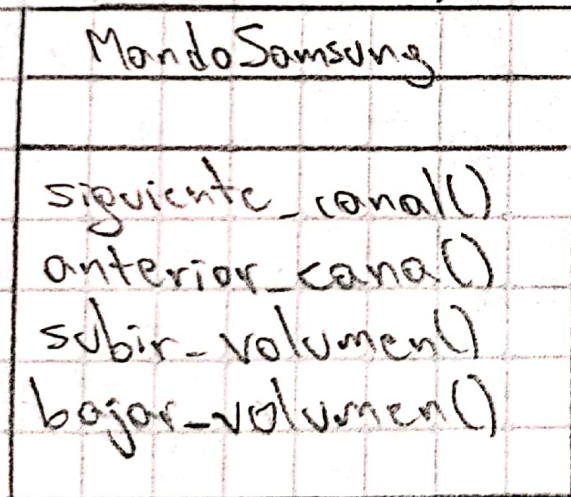 MandoSamsung
siguiente_canal()
anterior_cana()
subir_volumen()
bajar_volumen()